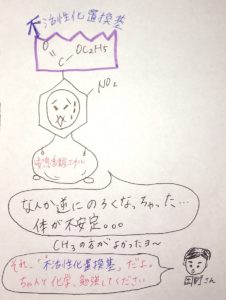 不活性化置換基
O
C
OC2H5
NO2
安息香酸エチル
なんか逆にのろくなっちゃった…
体が不安定。。。
CH3の方がよかったヨ〜
それ、「不活性化置換基」だよ。
ちゃんと化学、勉強してください
国町さん